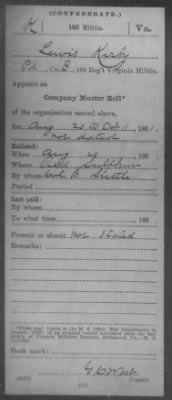 (CONFEDERATE.)
K 166 Militia. Va.
Lewis Kirby
Co. B, 166 Reg't Virginia Militia.
Appears on
Company Muster Roll*
of the organization named above,
for Aug 20 to Oct 11, 186 .
not dated
Enlisted:
When Aug 20, 186 .
Where Red Sulphur
By whom Col
Period
Last paid:
By whom
To what time , 186 .
Present or absent Not Stated
Remarks:
Book mark:
Copyist.